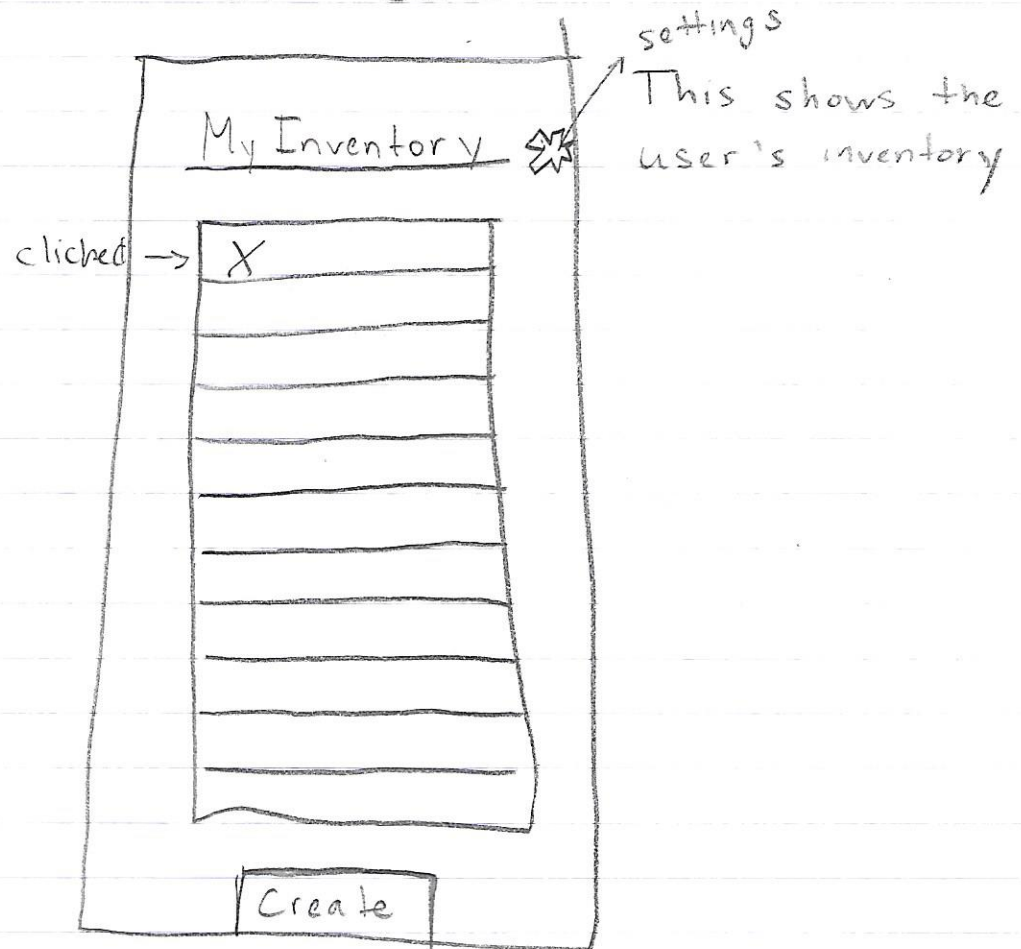 settings
This shows the
user's inventory
My Inventory
clicked → X
Create